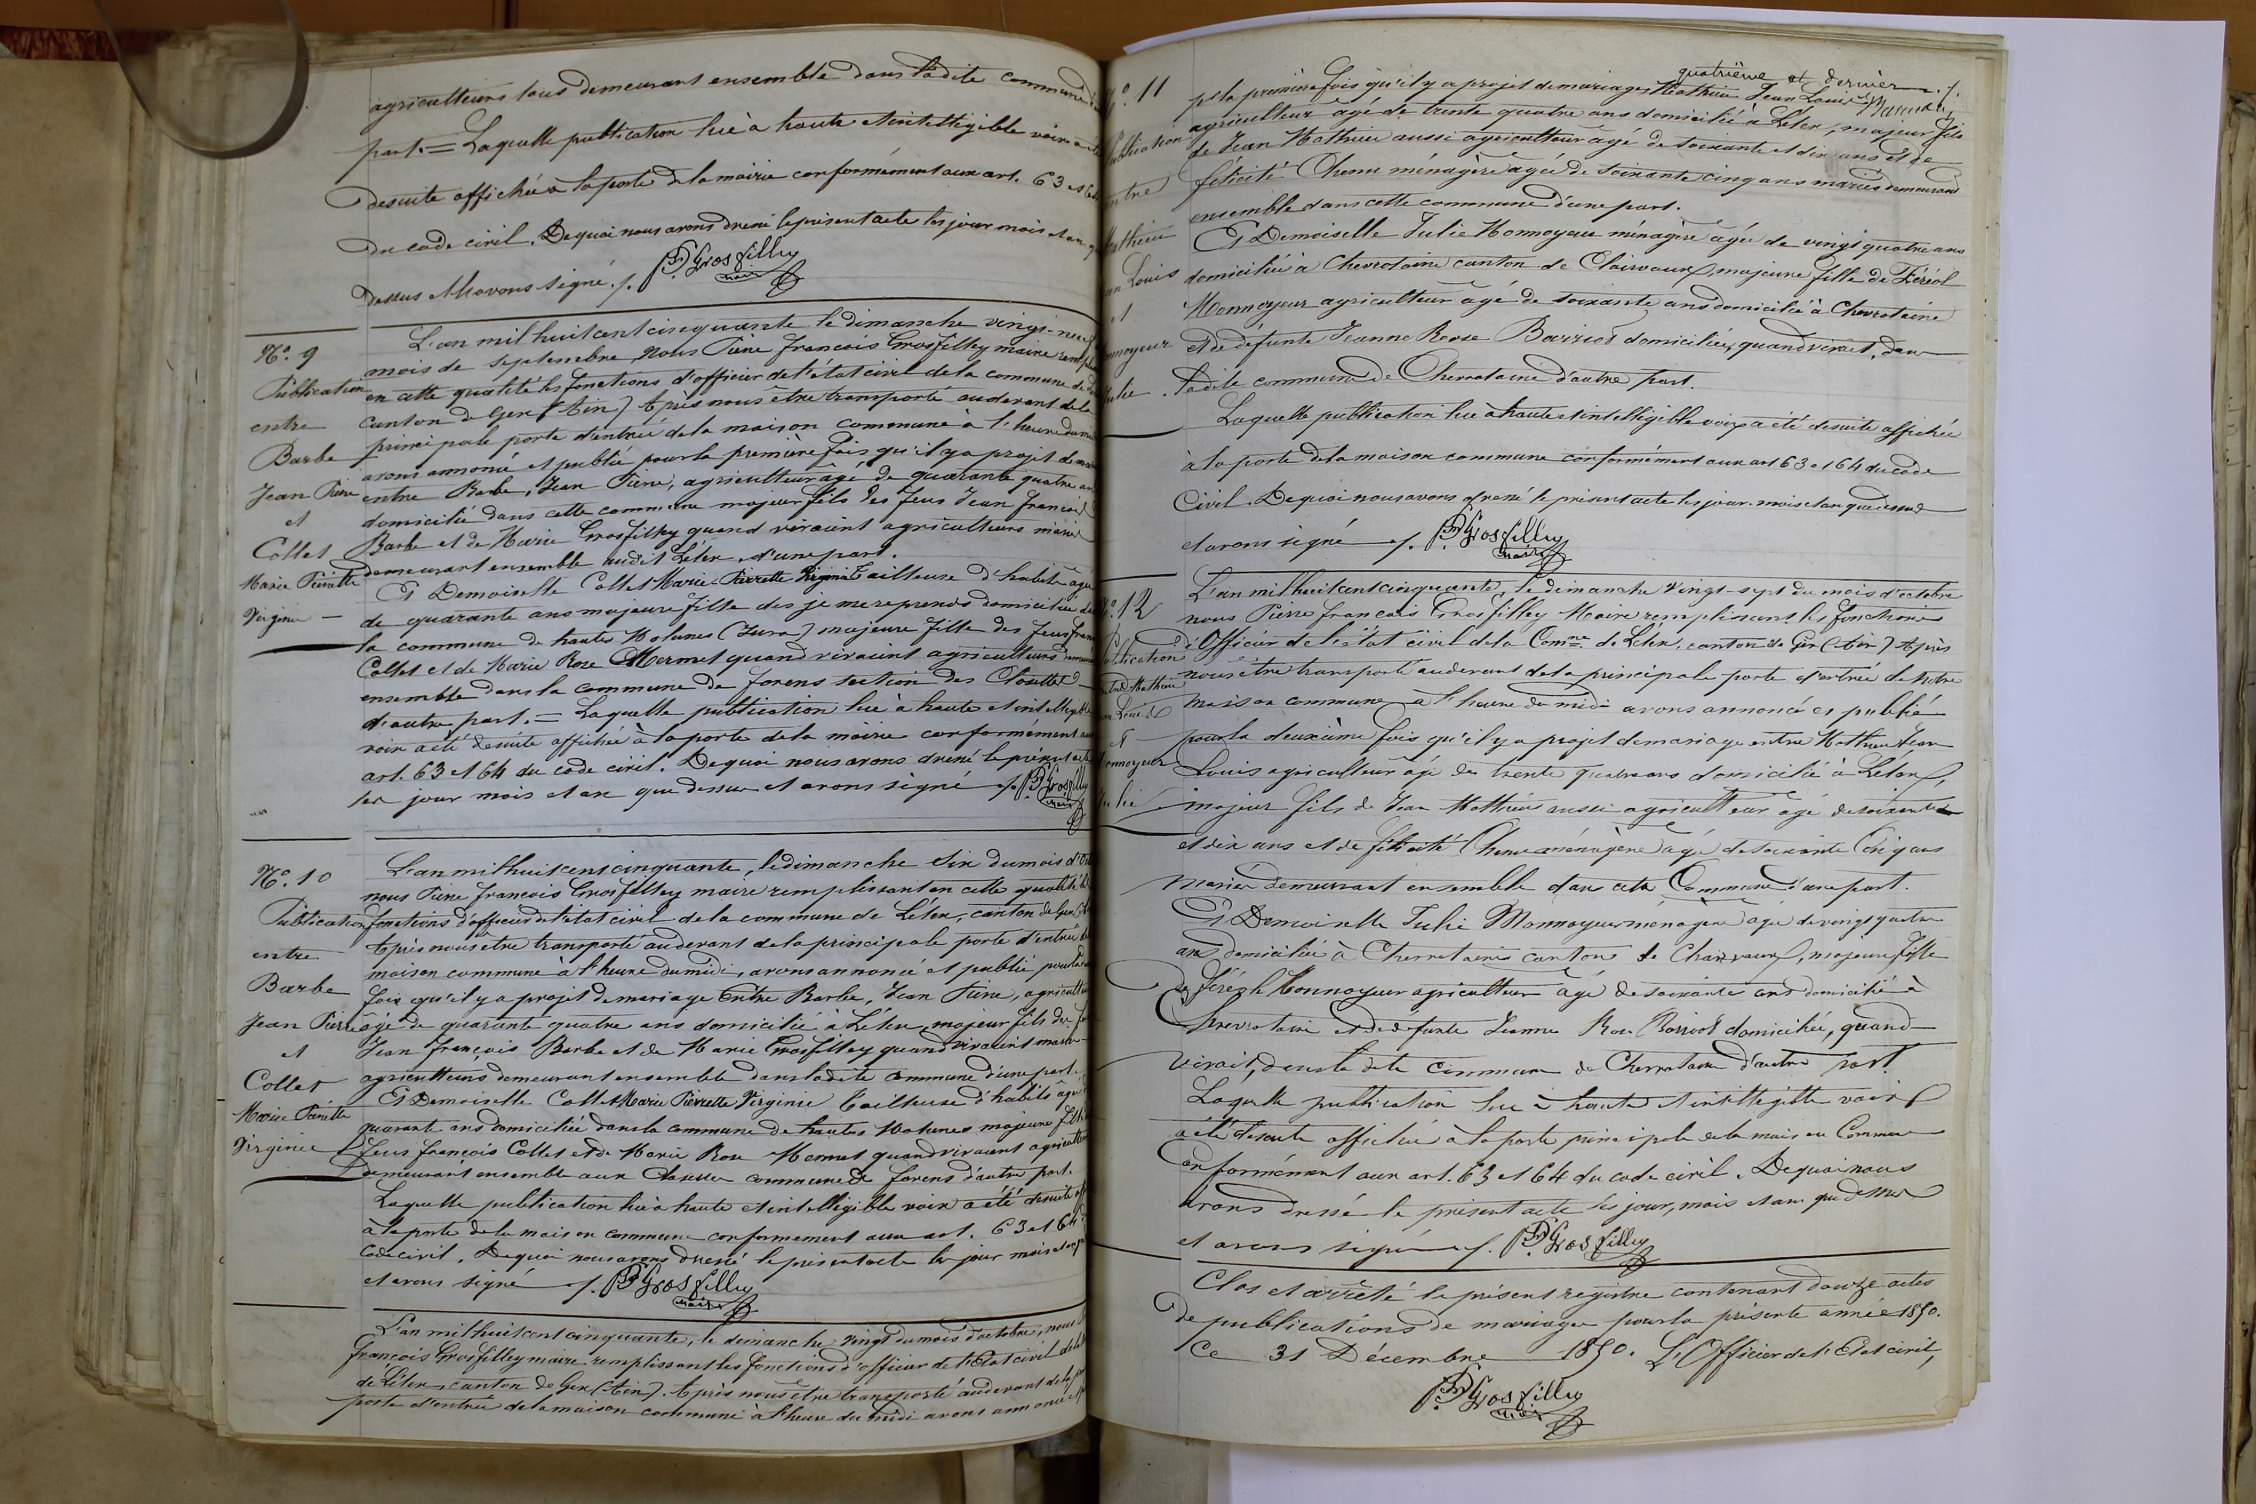 agriculteurs tous demeurant ensemble dans ladite commune
part. = Laquelle publication lue à haute et intelligible voix a été
desuite affichée à la porte de la mairie conformément aux art. 63 et
du code civil. Dequoi nous avons dressé le présent acte les jour mois et an
dessus et avons signé ./. Pre Fs Grosfilley
maire
No. 9
Publication
entre
Barbe
Jean Pierre
et
Collet
Marie Pierrette
Virginie
L'an mil huit cent cinquante le dimanche vingt-neuf
mois de septembre, nous Pierre françois Grosfilley maire
en cette qualité les fonctions d'officier de l'état civil de la commune de
canton de Gex (Ain) Après nous être transporté audevant de la
principale porte d'entrée de la maison commune à l'heure du
avons annoncé et publié pour la première fois qu'il y a projet de
entre Barbe, Jean Pierre, agriculteur âgé de quarante quatre
domicilié dans cette commune majeur fils des feus Jean françois
Barbe et de Marie Grosfilley quand vivaient agriculteurs mariés
demeurant ensemble audit Lélex, d'une part.
Et Demoiselle Collet Marie Pierrette Virginie tailleuse d'habits âgée
de quarante ans majeure fille des je me reprends domiciliée
la commune de hautes Molunes (Jura) majeure fille des feus
Collet et de Marie Rose Mermet quand vivaient agriculteurs
ensemble dans la commune de forens section des
d'autre part. = Laquelle publication lue à haute et intelligible
voix a été desuite affichée à la porte de la mairie conformément
art. 63 et 64 du code civil. Dequoi nous avons dressé le présent acte
les jour mois et an que dessus et avons signé ./. Pre Fs Grosfilley
maire
No. 10
Publication
entre
Barbe
Jean Pierre
et
Collet
Marie Pierrette
Virginie
L'an mil huit cent cinquante, le dimanche six du mois
nous Pierre françois Grosfilley maire remplissant en cette qualité
fonctions d'officier de l'état civil de la commune de Lélex, canton de Gex
Après nous être transporté audevant de la principale porte d'entrée
maison commune à l'heure du midi, avons annoncé et publié pour la
fois qu'il y a projet de mariage entre Barbe, Jean Pierre,
âgé de quarante quatre ans domicilié à Lélex, majeur fils des
Jean françois Barbe et de Marie Grosfilley quand vivaient
agriculteurs demeurant ensemble dans ladite commune d'une part.
Et Demoiselle Collet Marie Pierrette Virginie tailleuse d'habits
quarante ans domiciliée dans la commune de hautes Molunes majeure fille
feus françois Collet et de Marie Rose Mermet quand vivaient
demeurant ensemble aux commune de forens d'autre part.
Laquelle publication lue à haute et intelligible voix a été desuite
à la porte de la maison commune conformément aux art. 63 et 64
code civil. Dequoi nous avons dressé le présent acte les jour mois et an
et avons signé ./. Pre Fs Grosfilley
maire
L'an mil huit cent cinquante, le dimanche vingt du mois d'octobre, nous
françois Grosfilley maire remplissant les fonctions d'officier de l'Etat civil de la
de Lélex, canton de Gex (Ain). Après nous être transporté audevant de la
porte d'entrée de la maison commune à l'heure du midi avons annoncé et
No. 11
Mathieu
Louis
et
quatrième et dernier ./.
pr la première fois qu'il y a projet de mariage Mathieu Jean Louis
agriculteur âgé de trente quatre ans domicilié à Lélex, majeur fils
de Jean Mathieu aussi agriculteur âgé de soixante et dix ans et de
félicité ménagère âgée de soixante cinq ans mariés demeurant
ensemble dans cette commune d'une part.
Et Demoiselle Julie Monnoyeur ménagère âgée de vingt quatre ans
domiciliée à Chevrotaine canton de Clairvaux, majeure fille de Féréol
Monnoyeur agriculteur âgé de soixante ans domicilié à Chevrotaine
et de défunte Jeanne Rose domiciliée, quand vivait, dans
ladite commune de Chevrotaine d'autre part.
Laquelle publication lue à haute et intelligible voix a été desuite affichée
à la porte de la maison commune conformément aux art 63 et 64 du code
civil. Dequoi nous avons dressé le présent acte les jour mois et an que dessus
et avons signé ./. Pre Fs Grosfilley
maire
No. 12
Publication
entre Mathieu
Louis
et
Monnoyeur
Julie
L'an mil huit cent cinquante, le dimanche vingt-sept du mois d'octobre
nous Pierre françois Grosfilley Maire remplissant les fonctions
d'Officier de l'état civil de la Comne de Lélex, canton de Gex (Ain) Après
nous être transporté audevant de la principale porte d'entrée de notre
maison commune à l'heure du midi avons annoncé et publié
pour la deuxième fois qu'il y a projet de mariage entre Mathieu Jean
Louis agriculteur âgé de trente quatre ans domicilié à Lélex,
majeur fils de Jean Mathieu aussi agriculteur âgé de soixante
et dix ans et de félicité ménagère âgée de soixante cinq ans
mariés demeurant ensemble dans cette Commune d'une part.
Et Demoiselle Julie Monnoyeur ménagère âgée de vingt quatre
ans domiciliée à Chevrotaine canton de Clairvaux, majeure fille
de Féréol Monnoyeur agriculteur âgé de soixante ans domicilié à
Chevrotaine et de défunte Jeanne Rose domiciliée, quand
vivait, dans ladite commune de Chevrotaine d'autre part.
Laquelle publication lue à haute et intelligible voix
a été desuite affichée à la porte principale de la maison Commune
conformément aux art. 63 et 64 du code civil. Dequoi nous
avons dressé le présent acte les jour, mois et an que dessus
et avons signé ./. Pre Fs Grosfilley
Clos et arrêté le présent registre contenant douze actes
de publications de mariage pour la présente année 1850.
Ce 31 Décembre 1850. L'Officier de l'Etat civil,
Pre Fs Grosfilley
maire